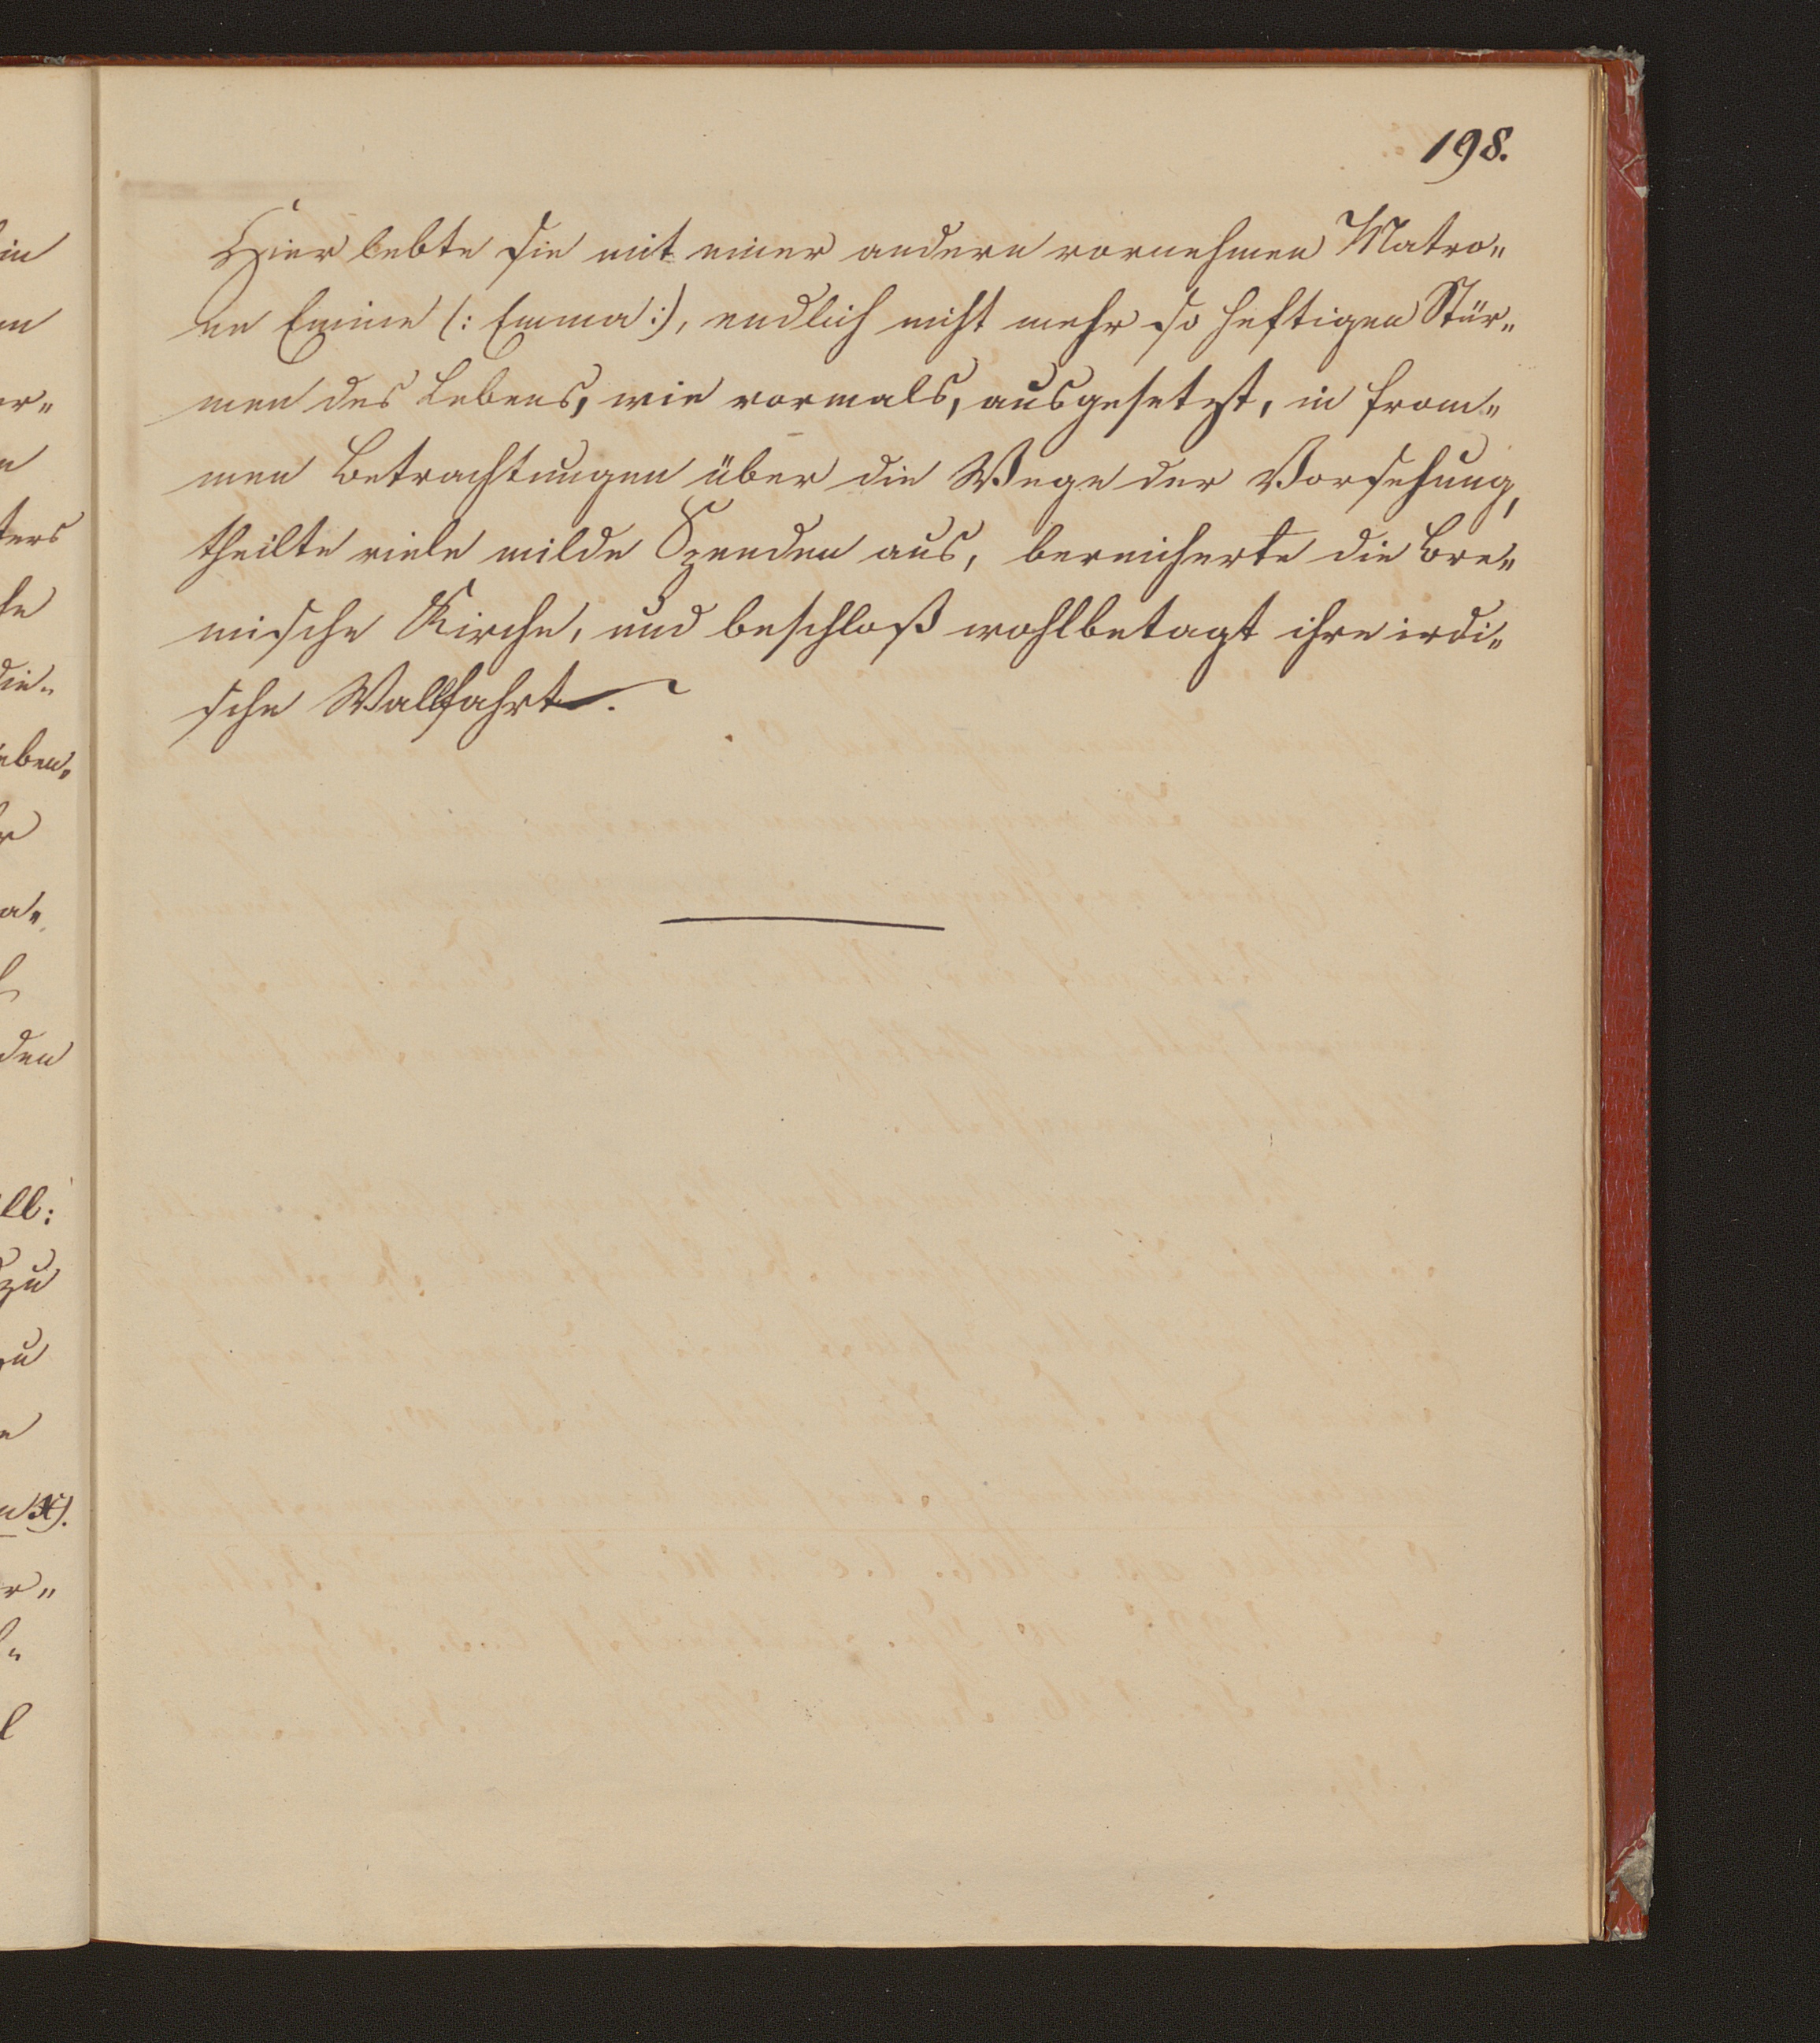 198.
Hier lebte sie mit einer andern vornehmen Matro„
ne Emine (: Emma :), endlich nicht mehr so heftigen Stür„
men des Lebens, wie vormals, ausgesetzt, in from„
men Betrachtungen über die Wege der Vorsehung,
theilte viele milde Spenden aus, bereicherte die Bre„
mische Kirche, und beschloß wohlbetagt ihre irdi„
sche Wallfahrt.